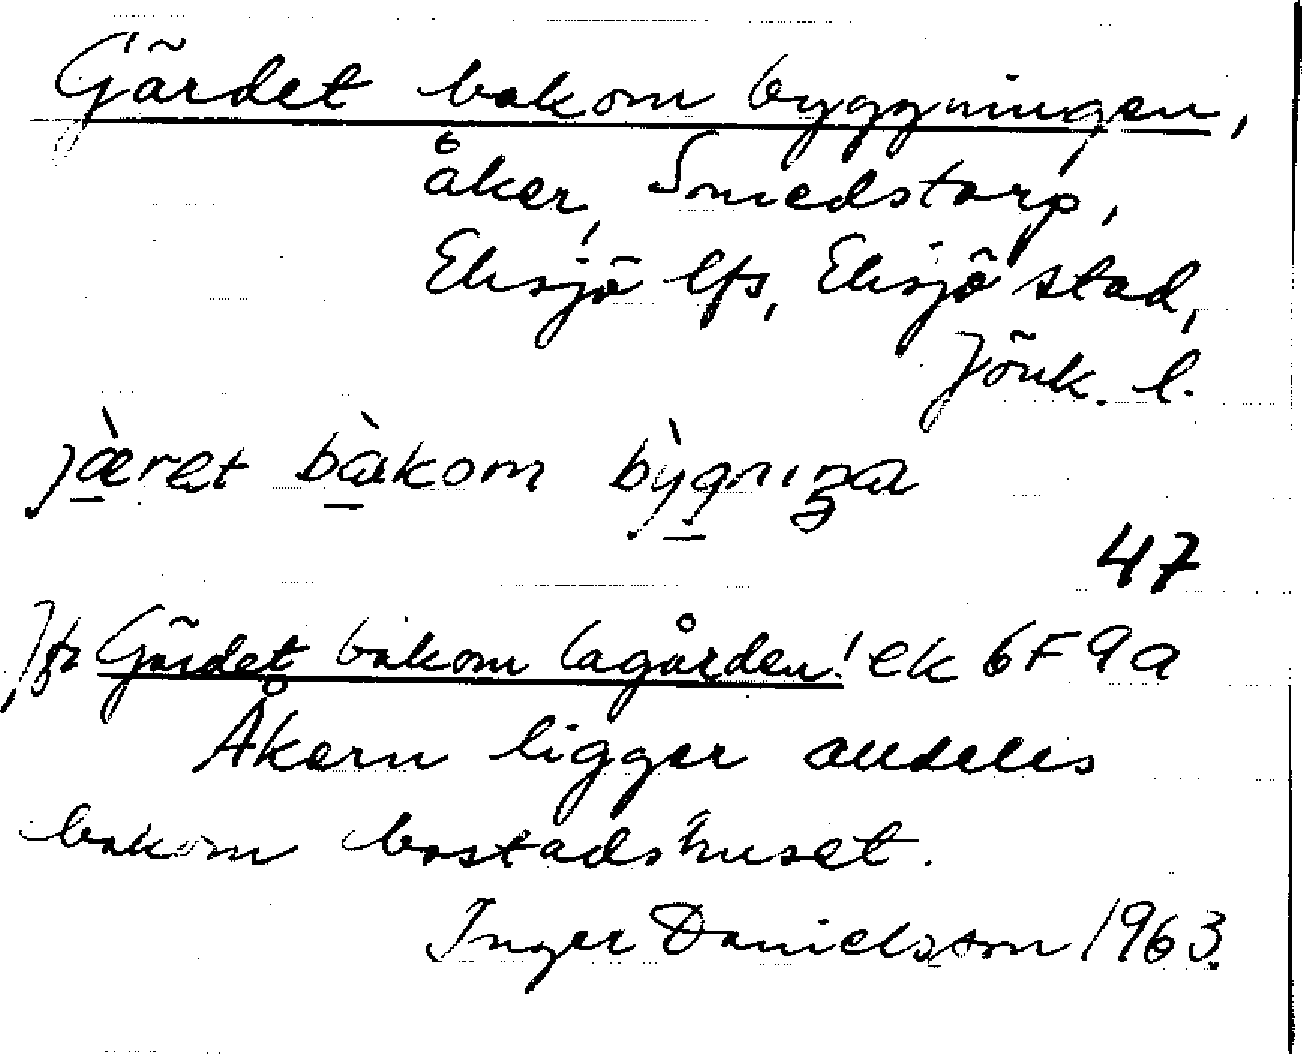 Gärdet bakom byggningen,
åker, Smedstorp,
Eksjö lfs, Eksjö stad,
Jönk. l.
jæ̀ret bàkom bỳgniŋa
47
Jfr Gärdet bakom lagården! ek 6F 9a
Åkern ligger alldeles
bakom bostadshuset.
Inger Danielsson 1963.